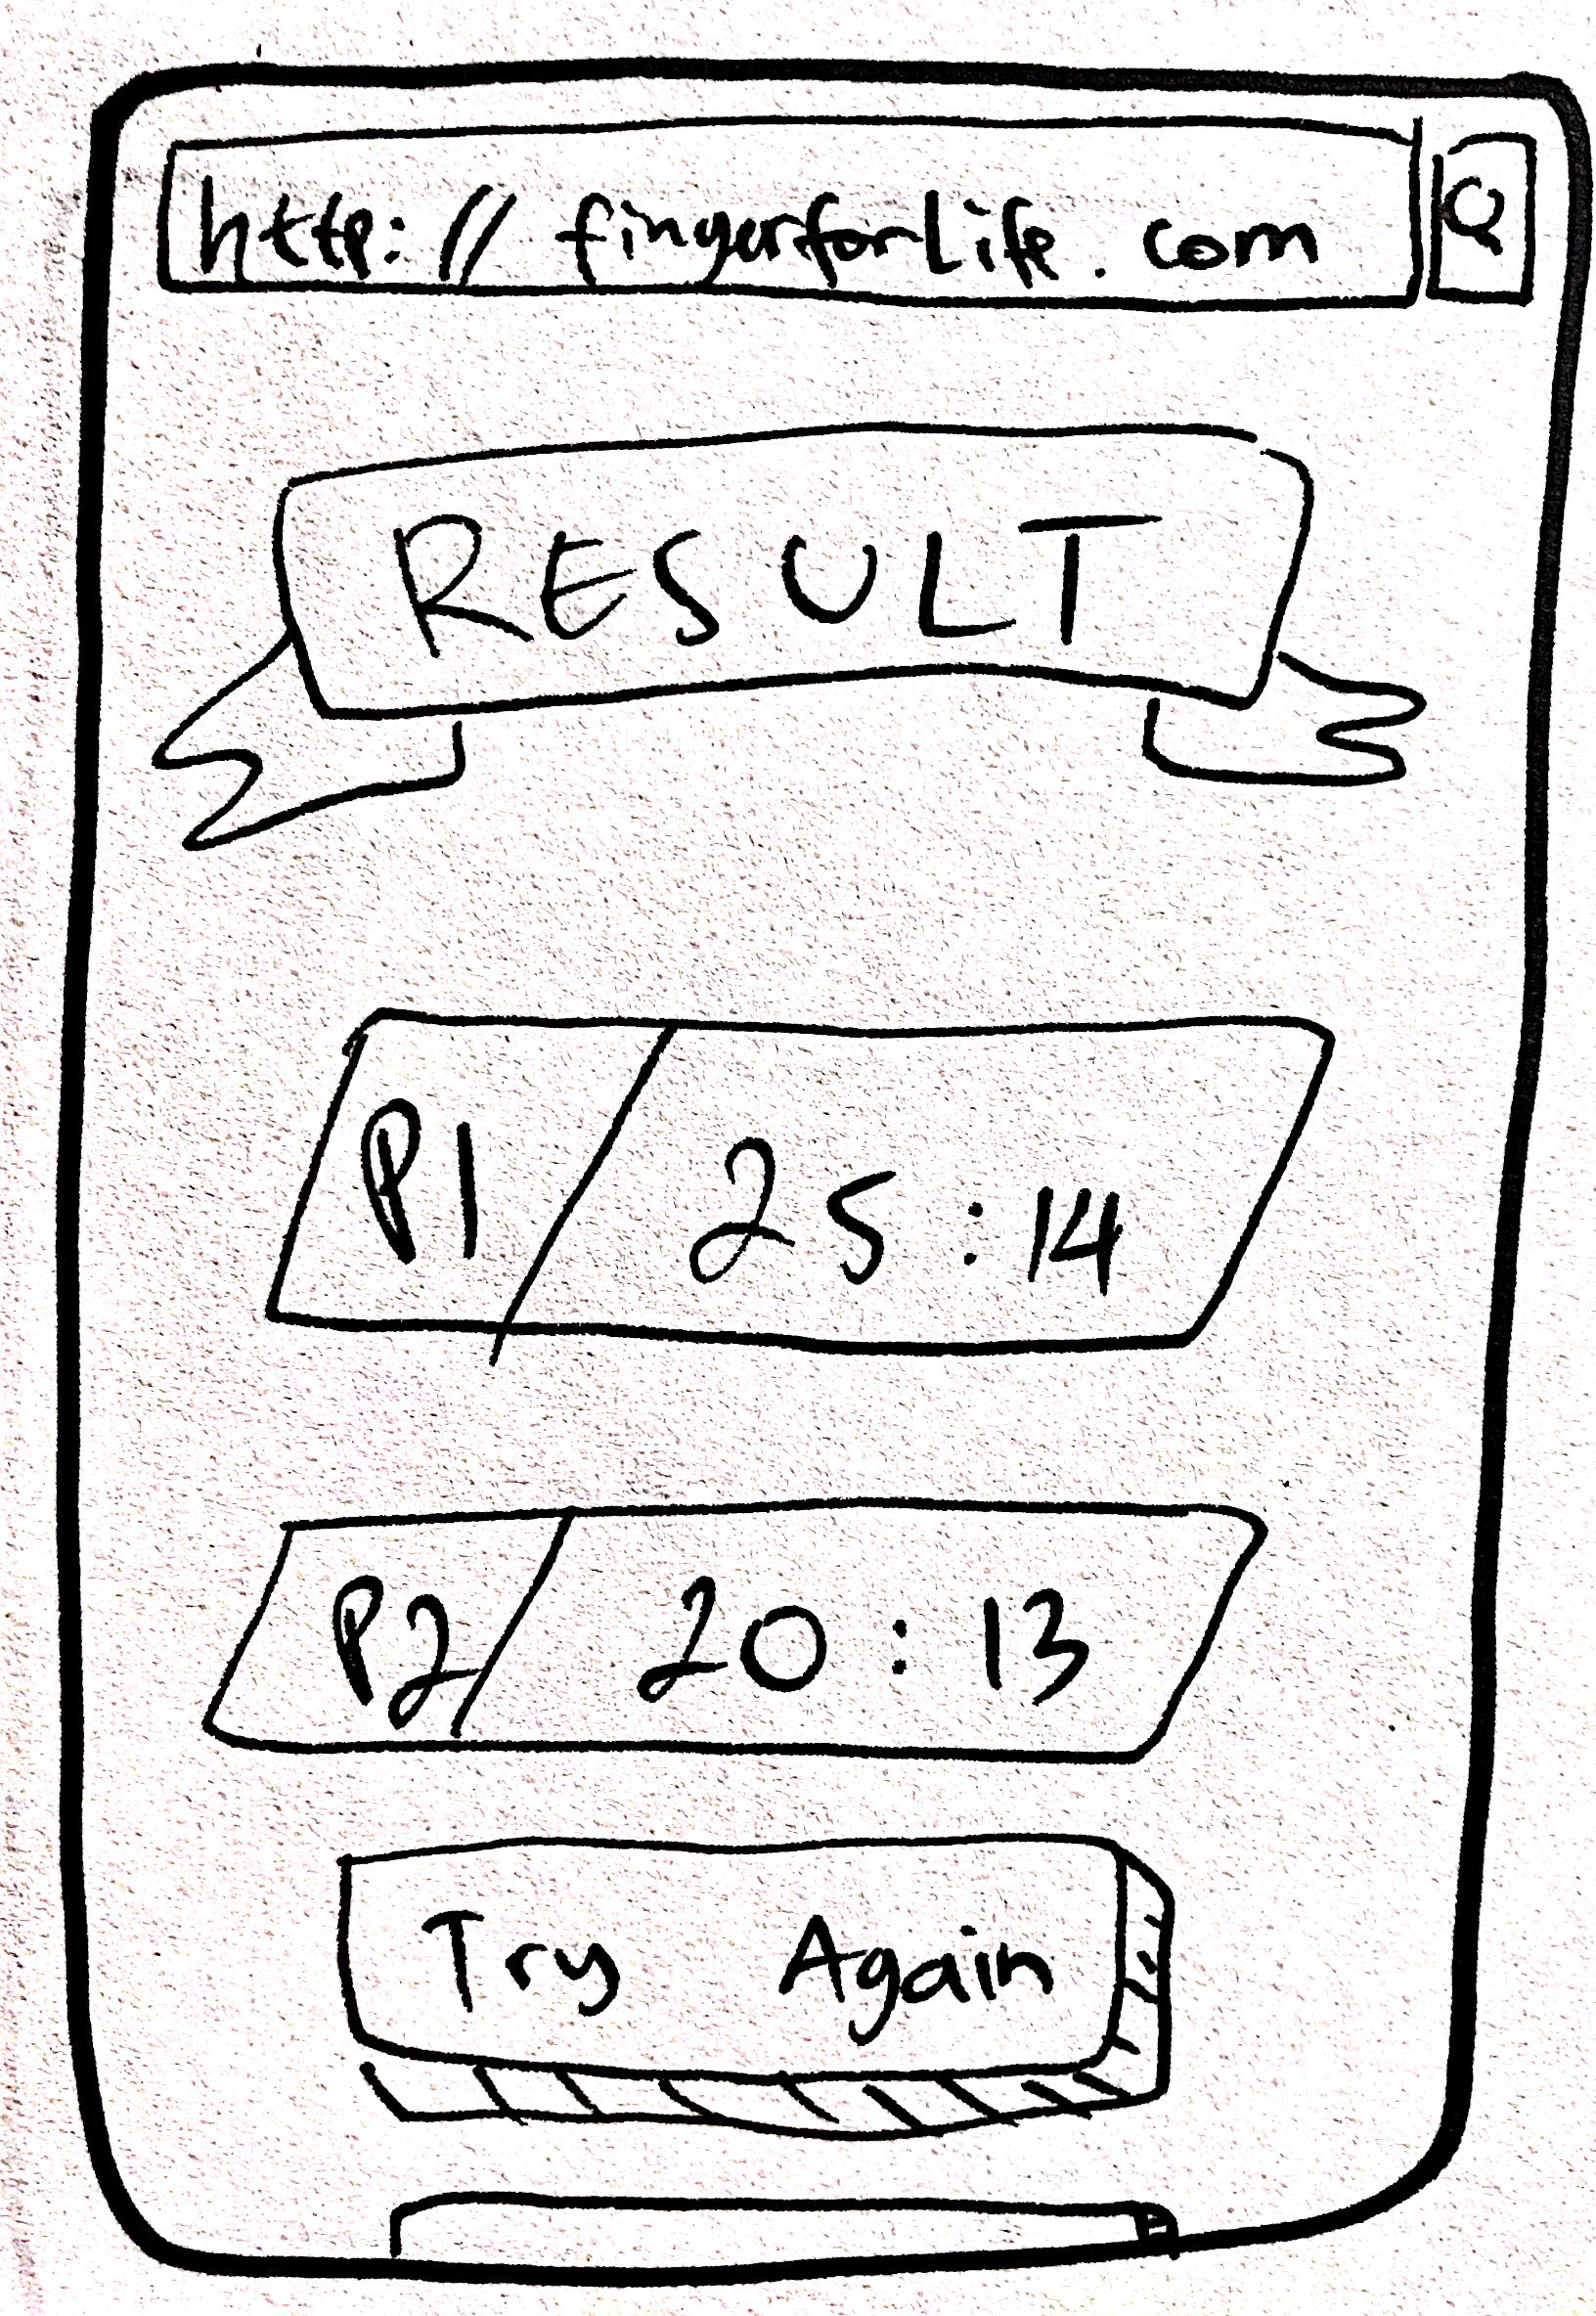 http://fingerforlife.com
RESULT
P1 25:14
P2 20:13
Try Again